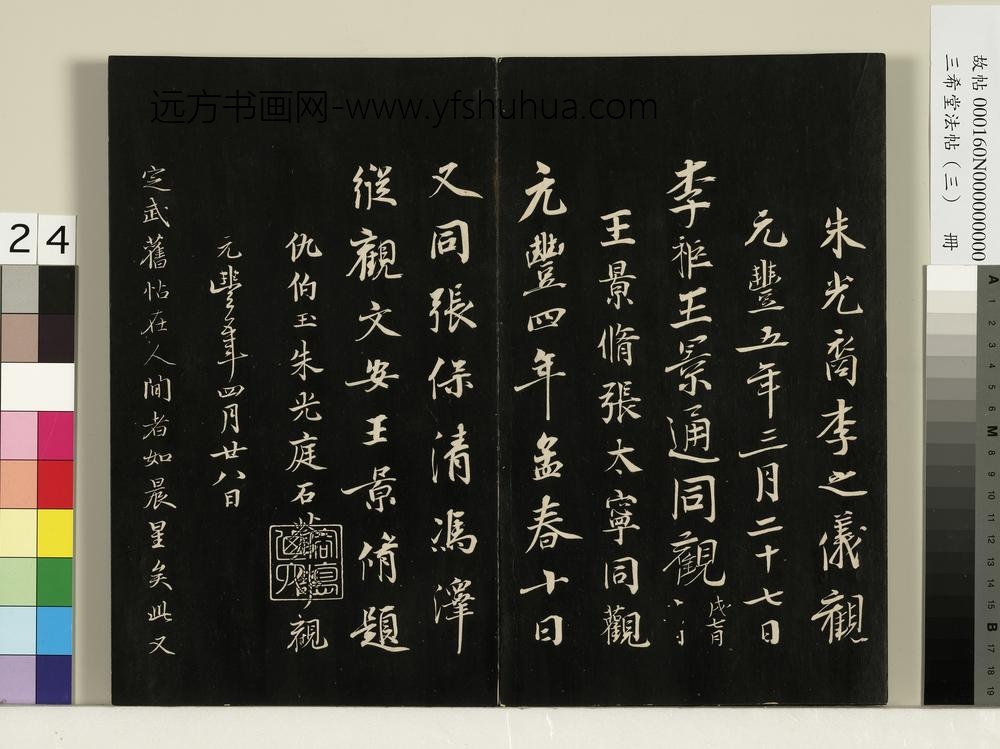 朱光裔李之儀觀
元豐五年三月二十七日
李秬王景通同觀
戊
王景脩張太寧同觀
元豐四年孟春十日
又同張保清馮澤
縱觀文安王景脩題
仇伯玉朱光庭石
觀
元豐年四月廿八日
定武舊帖在人間者如晨星矣此又
远方书画网-www.yfshuhua.com
故帖 000160N000000000
三希堂法帖(三) 冊
24
A 1 2 3 4 5 6 M 8 9 10 11 12 13 14 15 B 17 18 19